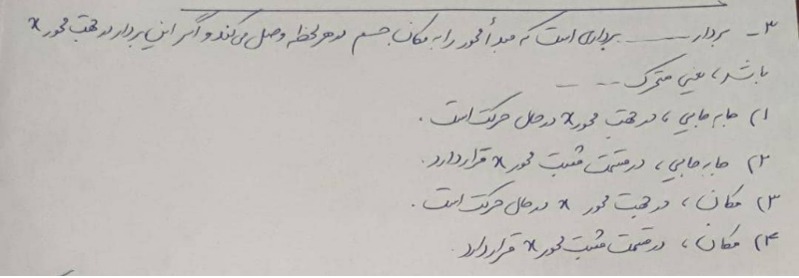 ۳- بردار ــــــ برداری است که مبدأ محور را به مکان جسم در هر لحظه وصل می‌کند و اگر این بردار در جهت محور x
باشد، یعنی متحرک ــــ
۱) جابه‌جایی، در جهت محور x در حال حرکت است.
۲) جابه‌جایی، در قسمت مثبت محور x قرار دارد.
۳) مکان، در جهت محور x در حال حرکت است.
۴) مکان، در قسمت مثبت محور x قرار دارد.